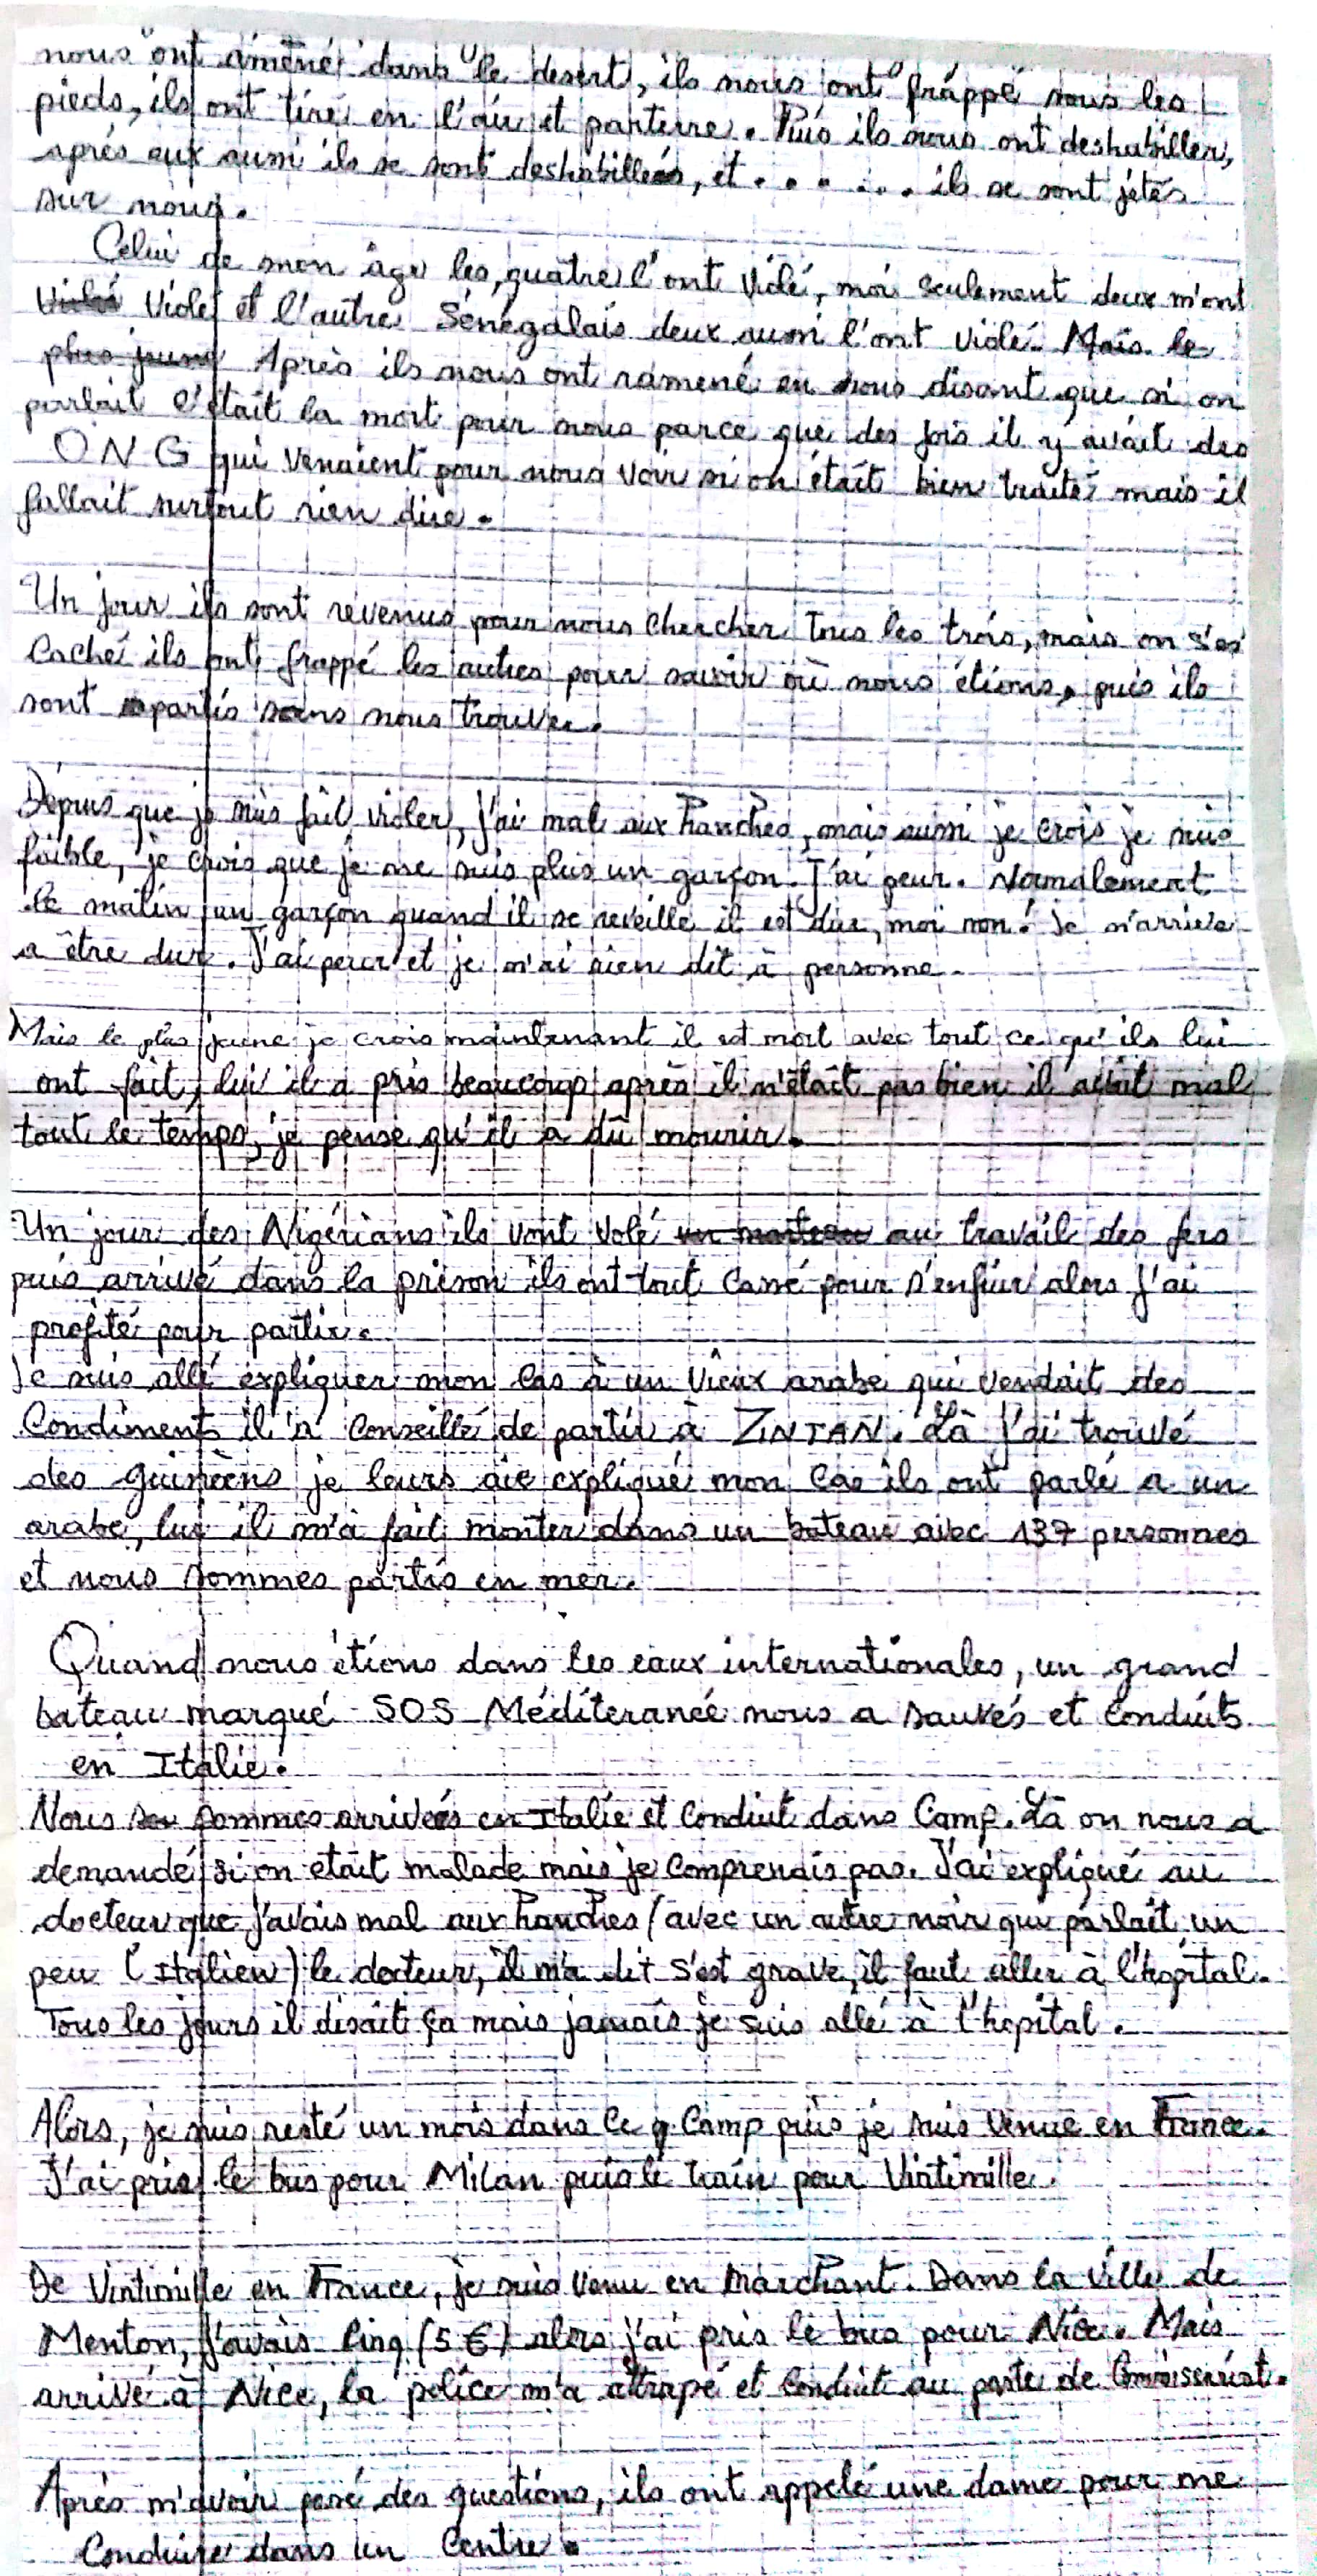 nous ont améné dans le desert, ils nous ont frappé sous les
pieds, ils ont tiré en l'air et parterre. Puis ils nous ont deshabiller,
après eux aussi ils se sont deshabillés, et . . . . . . . ils se sont jétés
sur nous.
Celui de mon âge les quatre l'ont violé, moi seulement deux m'ont
violé violé et l'autre Sénégalais deux aussi l'ont violé. Mais le
plus jeune Après ils nous ont ramené en nous disant que si on
parlait c'était la mort pour nous parce que des fois il y avait des
ONG qui venaient pour nous voir si on était bien traité mais il
fallait surtout rien dire.
Un jour ils sont revenus pour nous chercher tous les trois, mais on s'es
caché ils ont frappé les autres pour savoir où nous étions, puis ils
sont partis sans nous trouver.
Dépuis que je suis fait violer, j'ai mal aux hanches, mais aussi je crois je suis
faible, je crois que je ne suis plus un garçon. J'ai peur. Normalement
le matin un garçon quand il se reveille il est dur, moi non! Je n'arrive
a être dur. J'ai peur et je n'ai rien dit à personne.
Mais le plus jeune je crois maintenant il est mort avec tout ce qu'ils lui
ont fait, lui il a pris beaucoup après il n'était pas bien il avait mal
tout le temps, je pense qu'il a dû mourir.
Un jour des Nigérians ils vont volé un marteau au travail des fers
puis arrivé dans la prison ils ont tout cassé pour s'enfuir alors j'ai
profité pour partir.
Je suis allé expliquer mon cas à un vieux arabe qui vendait des
Condiments il a conseillé de partir à ZINTAN. Là j'ai trouvé
des guinéens je leurs aie expliqué mon cas ils ont parlé a un
arabe, lui il m'a fait monter dans un bateau avec 137 personnes
et nous sommes partis en mer.
Quand nous étions dans les eaux internationales, un grand
bateau marqué SOS Méditéranée nous a sauvés et conduits
en Italie.
Nous sommes arrivés en Italie et conduit dans Camp. Là on nous a
demandé si on etait malade mais je comprenais pas. J'ai expliqué au
docteur que j'avais mal aux hanches (avec un autre noir qui parlait un
peu l'Italien) le docteur, il m'a dit s'est grave, il faut aller à l'hopital.
Tous les jours il disait ça mais jamais je suis allé à l'hopital.
Alors, je suis resté un mois dans ce Camp puis je suis venue en France.
J'ai pris le bus pour Milan puis le train pour Vintimille.
De Vintimille en France, je suis venu en marchant. Dans la ville de
Menton, j'avais cinq (5 €) alors j'ai pris le bus pour Nice. Mais
arrivé à Nice, la police m'a attrapé et conduit au poste de
Après m'avoir posé des questions, ils ont appelé une dame pour me
Conduire dans un Centre.